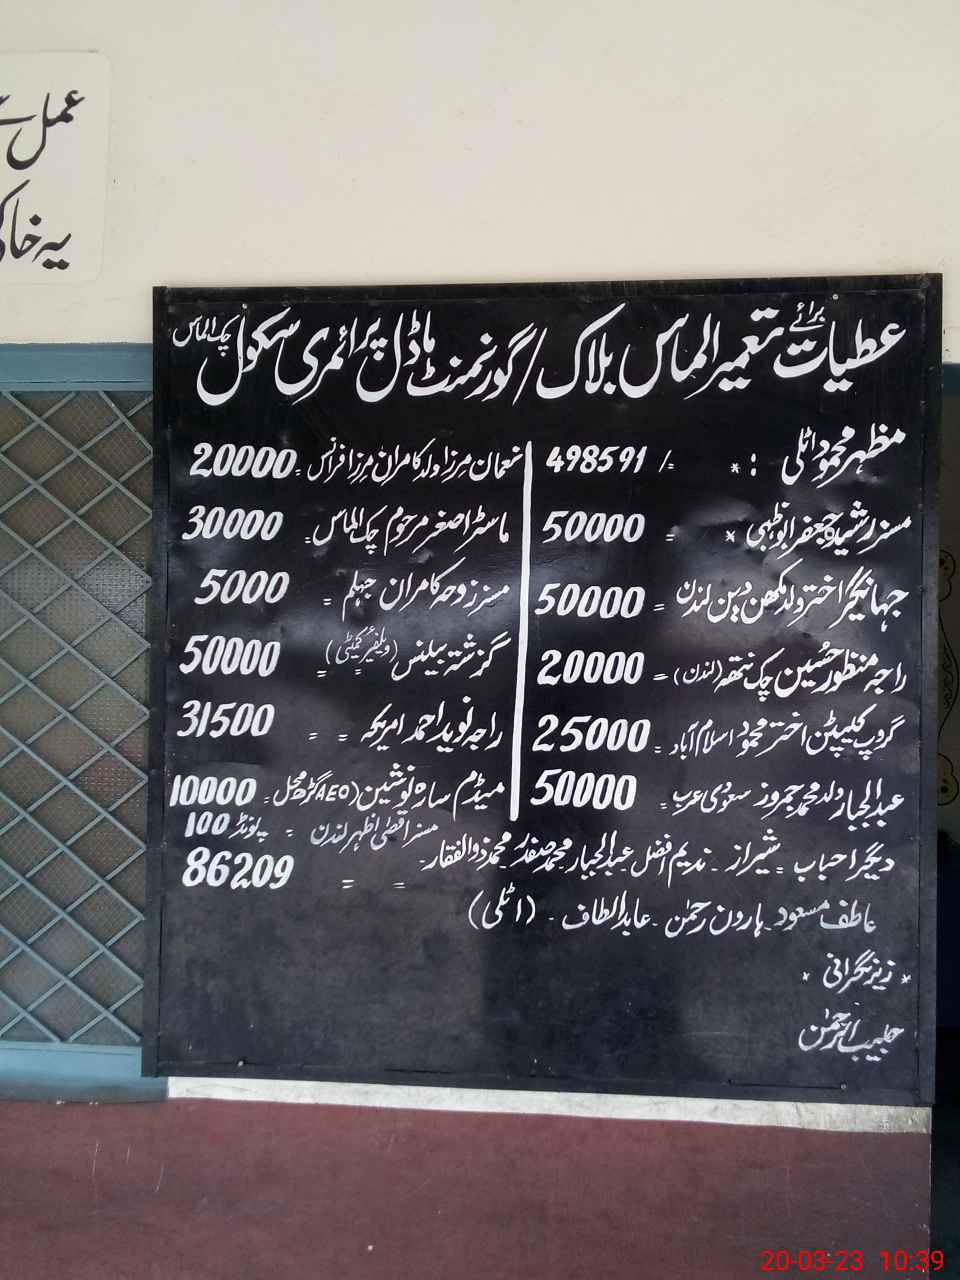 عمل سے
یہ خاکی
عطیات برائے تعمیر الماس بلاک / گورنمنٹ ماڈل پرائمری سکول چک الماس
مظہر محمود اٹلی : * = / 498591
مسز رشیدہ جعفر ابوظہبی * = 50000
جہانگیر اختر ولد مکھن دین لندن = 50000
راجہ منظور حسین چک نتھہ (لندن) = 20000
گروپ کیپٹن اختر محمود اسلام آباد = 25000
عبدالجبار ولد محمد جروز سعودی عرب = 50000
نعمان مرزا ولد کامران مرزا فرانس = 20000
ماسٹر اصغر مرحوم چک الماس = 30000
مسز زوجہ کامران جہلم = 5000
گزشتہ بیلنس (ویلفیئر کمیٹی) = 50000
راجہ نوید احمد امریکہ = = 31500
میڈم سارہ نوشین (AEO گڑھ محل = 10000
مسز اقصیٰ اظہر لندن = پاونڈ 100
دیگر احباب = شیراز - ندیم افضل عبدالجبار محمد صفدر محمد ذوالفقار = = 86209
عاطف مسعود - ہارون رحمٰن - عابد الطاف - (اٹلی)
* زیر نگرانی *
حبیب الرحمٰن
20-03-23 10:39